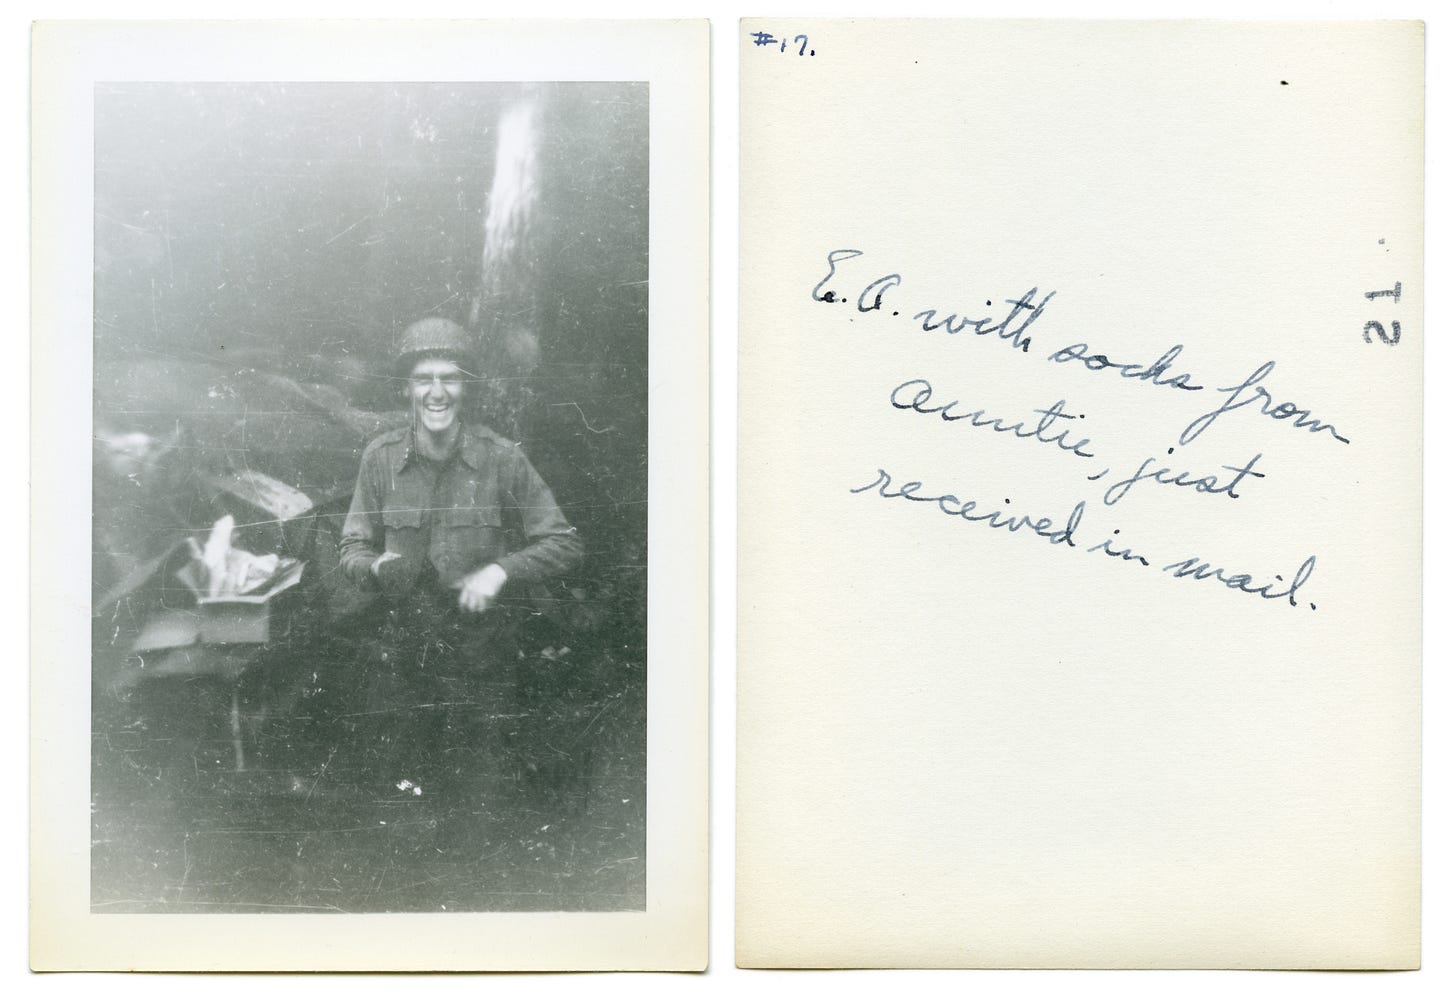 #17.
E.A. with socks from
Auntie, just
received in mail.
21